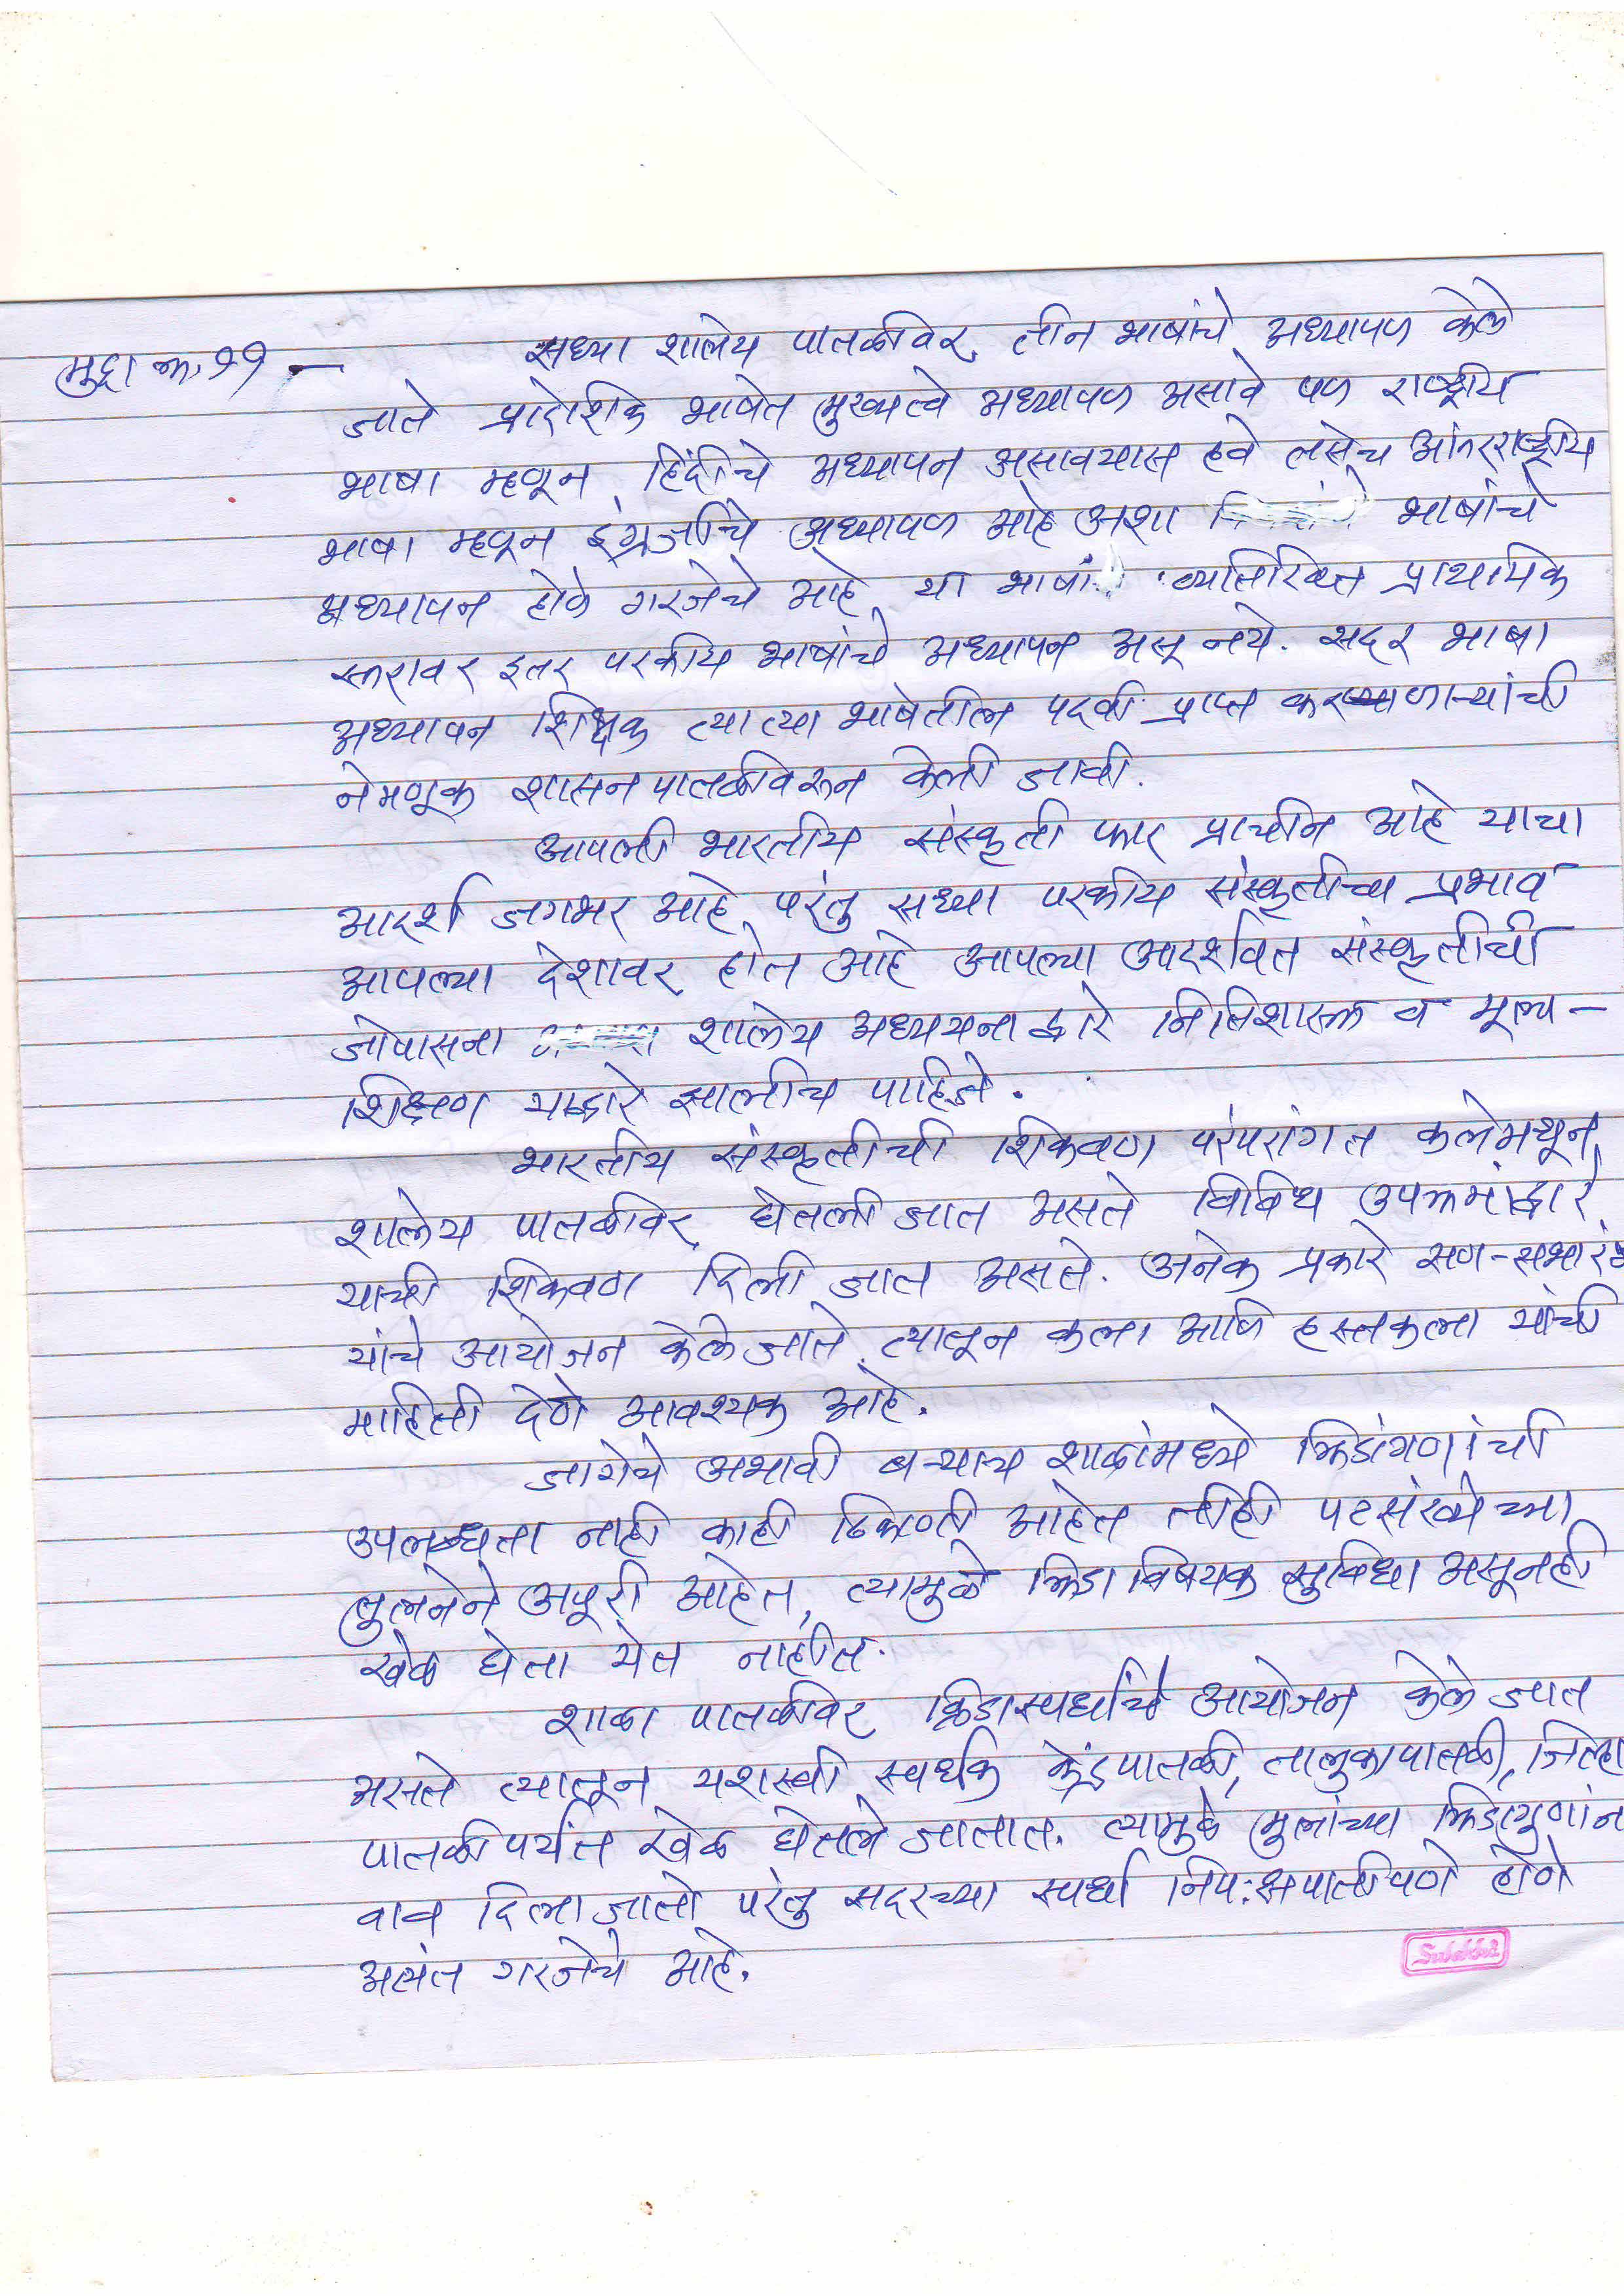 मुद्दा क्र. ११ – सध्या शालेय पातळीवर तीन भाषांचे अध्यापण केले
जाते प्रादेशिक भाषेत मुख्यत्वे अध्यापण असावे पण राष्ट्रीय
भाषा म्हणून हिंदीचे अध्यापन असावयास हवे तसेच आंतरराष्ट्रीय
भाषा म्हणून इंग्रजीचे अध्यापण आहे अशा भाषांचे
अध्यापन होणे गरजेचे आहे या भाषां व्यतिरिक्त प्राथमिक
स्तरावर इतर परकीय भाषांचे अध्यापन असू नये. सदर भाषा
अध्यापन शिक्षक त्या त्या भाषेतील पदवी प्राप्त करणाऱ्यांची
नेमणूक शासन पातळीवरून केली जावी.
आपली भारतीय संस्कृती फार प्राचीन आहे याचा
आदर्श जगभर आहे परंतु सध्या परकीय संस्कृतीचा प्रभाव
आपल्या देशावर होत आहे आपल्या आदर्शवित संस्कृतीची
जोपासना शालेय अध्ययनाद्वारे नितिशास्त्र व मूल्य –
शिक्षण याद्वारे झालीच पाहिजे.
भारतीय संस्कृतीची शिकवण परंपरांगत कलेमधून
शालेय पातळीवर घेतली जात असते विविध उपक्रमांद्वारे
याची शिकवण दिली जात असते. अनेक प्रकारे सण-समारंभ
यांचे आयोजन केले जाते. त्यातून कला आणि हस्तकला यांची
माहिती देणे आवश्यक आहे.
जागेचे अभावी बऱ्याच शाळांमध्ये क्रिडांगणांची
उपलब्धता नाही काही ठिकाणी आहेत तीही पटसंख्येच्या
तुलनेने अपूरी आहेत, त्यामुळे क्रिडा विषयक सुविधा असूनही
खेळ घेता येत नाहीत.
शाळा पातळीवर क्रिडास्पर्धांचे आयोजन केले जात
असते त्यातून यशस्वी स्पर्धक केंद्रपातळी, तालुकापातळी, जिल्हा
पातळी पर्यंत खेळ घेतले जातात. त्यामुळे मुलांच्या क्रिडागुणांन
वाव दिला जातो परंतु सदरच्या स्पर्धा निपःक्षपातीपणे होणे
अत्यंत गरजेचे आहे.